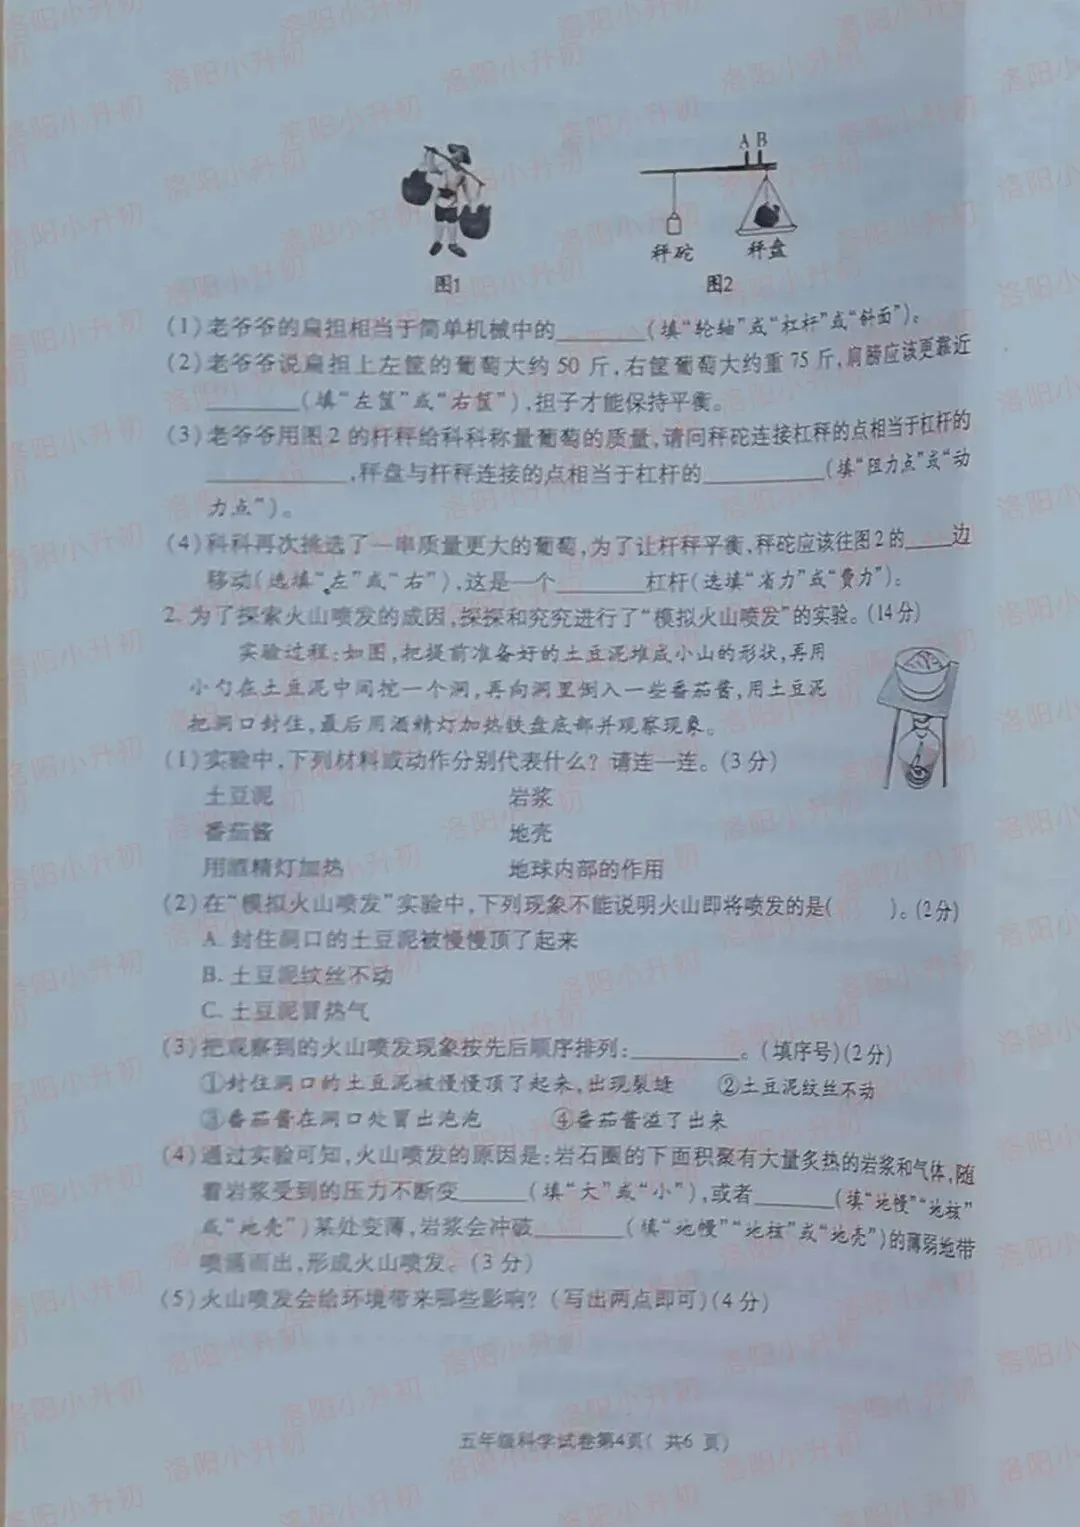 A B
秤砣
秤盘
图1
图2
(1)老爷爷的扁担相当于简单机械中的________(填“轮轴”或“杠杆”或“斜面”)。
(2)老爷爷说扁担上左筐的葡萄大约50斤,右筐葡萄大约重75斤,肩膀应该更靠近
________(填“左筐”或“右筐”),担子才能保持平衡。
(3)老爷爷用图2的杆秤给科科称量葡萄的质量,请问秤砣连接杠秤的点相当于杠杆的
____________,秤盘与杆秤连接的点相当于杠杆的__________(填“阻力点”或“动
力点”)。
(4)科科再次挑选了一串质量更大的葡萄,为了让杆秤平衡,秤砣应该往图2的____边
移动(选填“左”或“右”),这是一个________杠杆(选填“省力”或“费力”)。
2.为了探索火山喷发的成因,探探和究究进行了“模拟火山喷发”的实验。(14分)
实验过程:如图,把提前准备好的土豆泥堆成小山的形状,再用
小勺在土豆泥中间挖一个洞,再向洞里倒入一些番茄酱,用土豆泥
把洞口封住,最后用酒精灯加热铁盘底部并观察现象。
(1)实验中,下列材料或动作分别代表什么?请连一连。(3分)
土豆泥 岩浆
番茄酱 地壳
用酒精灯加热 地球内部的作用
(2)在“模拟火山喷发”实验中,下列现象不能说明火山即将喷发的是( )。(2分)
A. 封住洞口的土豆泥被慢慢顶了起来
B. 土豆泥纹丝不动
C. 土豆泥冒热气
(3)把观察到的火山喷发现象按先后顺序排列:_________。(填序号)(2分)
①封住洞口的土豆泥被慢慢顶了起来,出现裂缝 ②土豆泥纹丝不动
③番茄酱在洞口处冒出泡泡 ④番茄酱溢了出来
(4)通过实验可知,火山喷发的原因是:岩石圈的下面积聚有大量炙热的岩浆和气体,随
着岩浆受到的压力不断变______(填“大”或“小”),或者______(填“地幔”“地核”
或“地壳”)某处变薄,岩浆会冲破_______(填“地幔”“地核”或“地壳”)的薄弱地带
喷涌而出,形成火山喷发。(3分)
(5)火山喷发会给环境带来哪些影响?(写出两点即可)(4分)
五年级科学试卷第4页( 共6 页)
洛阳小升初